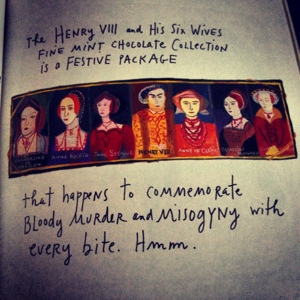 The HENRY VIII and His Six Wives
FINE MINT CHOCOLATE COLLECTION
is a FESTIVE PACKAGE
ANNE BOLEYN
JANE SEYMOUR
HENRY VIII
ANNE OF CLEVES
that happens to commemorate
Bloody MURDER and MISOGYNY with
every bite. Hmm.